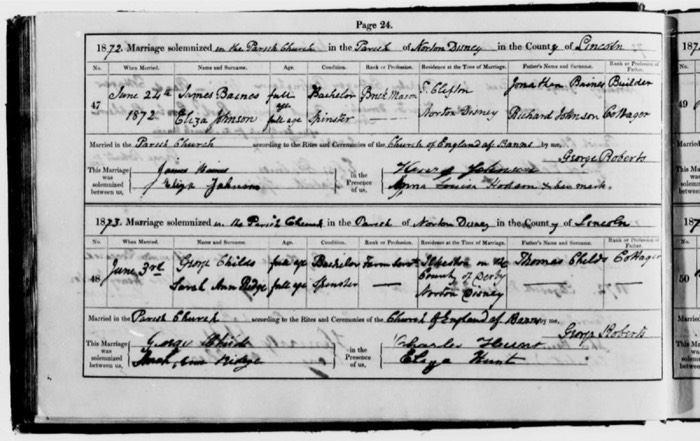 Page 24.
1872. Marriage solemnized in the Parish Church in the Parish of Norton Disney in the County of Lincoln
No. When Married. Name and Surname. Age. Condition. Rank or Profession. Residence at the Time of Marriage. Father's Name and Surname. Rank or Profession of Father.
47 June 24th 1872 James Baines full age Bachelor Brick Mason S. Clifton Jonathan Baines Builder
Eliza Johnson full age Spinster Norton Disney Richard Johnson Cottager
Married in the Parish Church according to the Rites and Ceremonies of the Church of England af. Banns by me,
George Roberts
This Marriage was solemnized between us, James Baines in the Presence of us, Henry Johnson
Eliza Johnson Anna Louisa Hodson X her mark.
1873. Marriage solemnized in the Parish Church in the Parish of Norton Disney in the County of Lincoln
No. When Married. Name and Surname. Age. Condition. Rank or Profession. Residence at the Time of Marriage. Father's Name and Surname. Rank or Profession of Father.
48 June 3rd George Childs full age Bachelor Farm Servt Ilkeston in the County of Derby Thomas Childs Cottager
Sarah Ann Ridge full age Spinster — Norton Disney — —
Married in the Parish Church according to the Rites and Ceremonies of the Church of England af. Banns by me,
George Roberts
This Marriage was solemnized between us, George Childs in the Presence of us, Charles Hunt
Sarah Ann Ridge Eliza Hunt
187
No.
49
187
No.
50